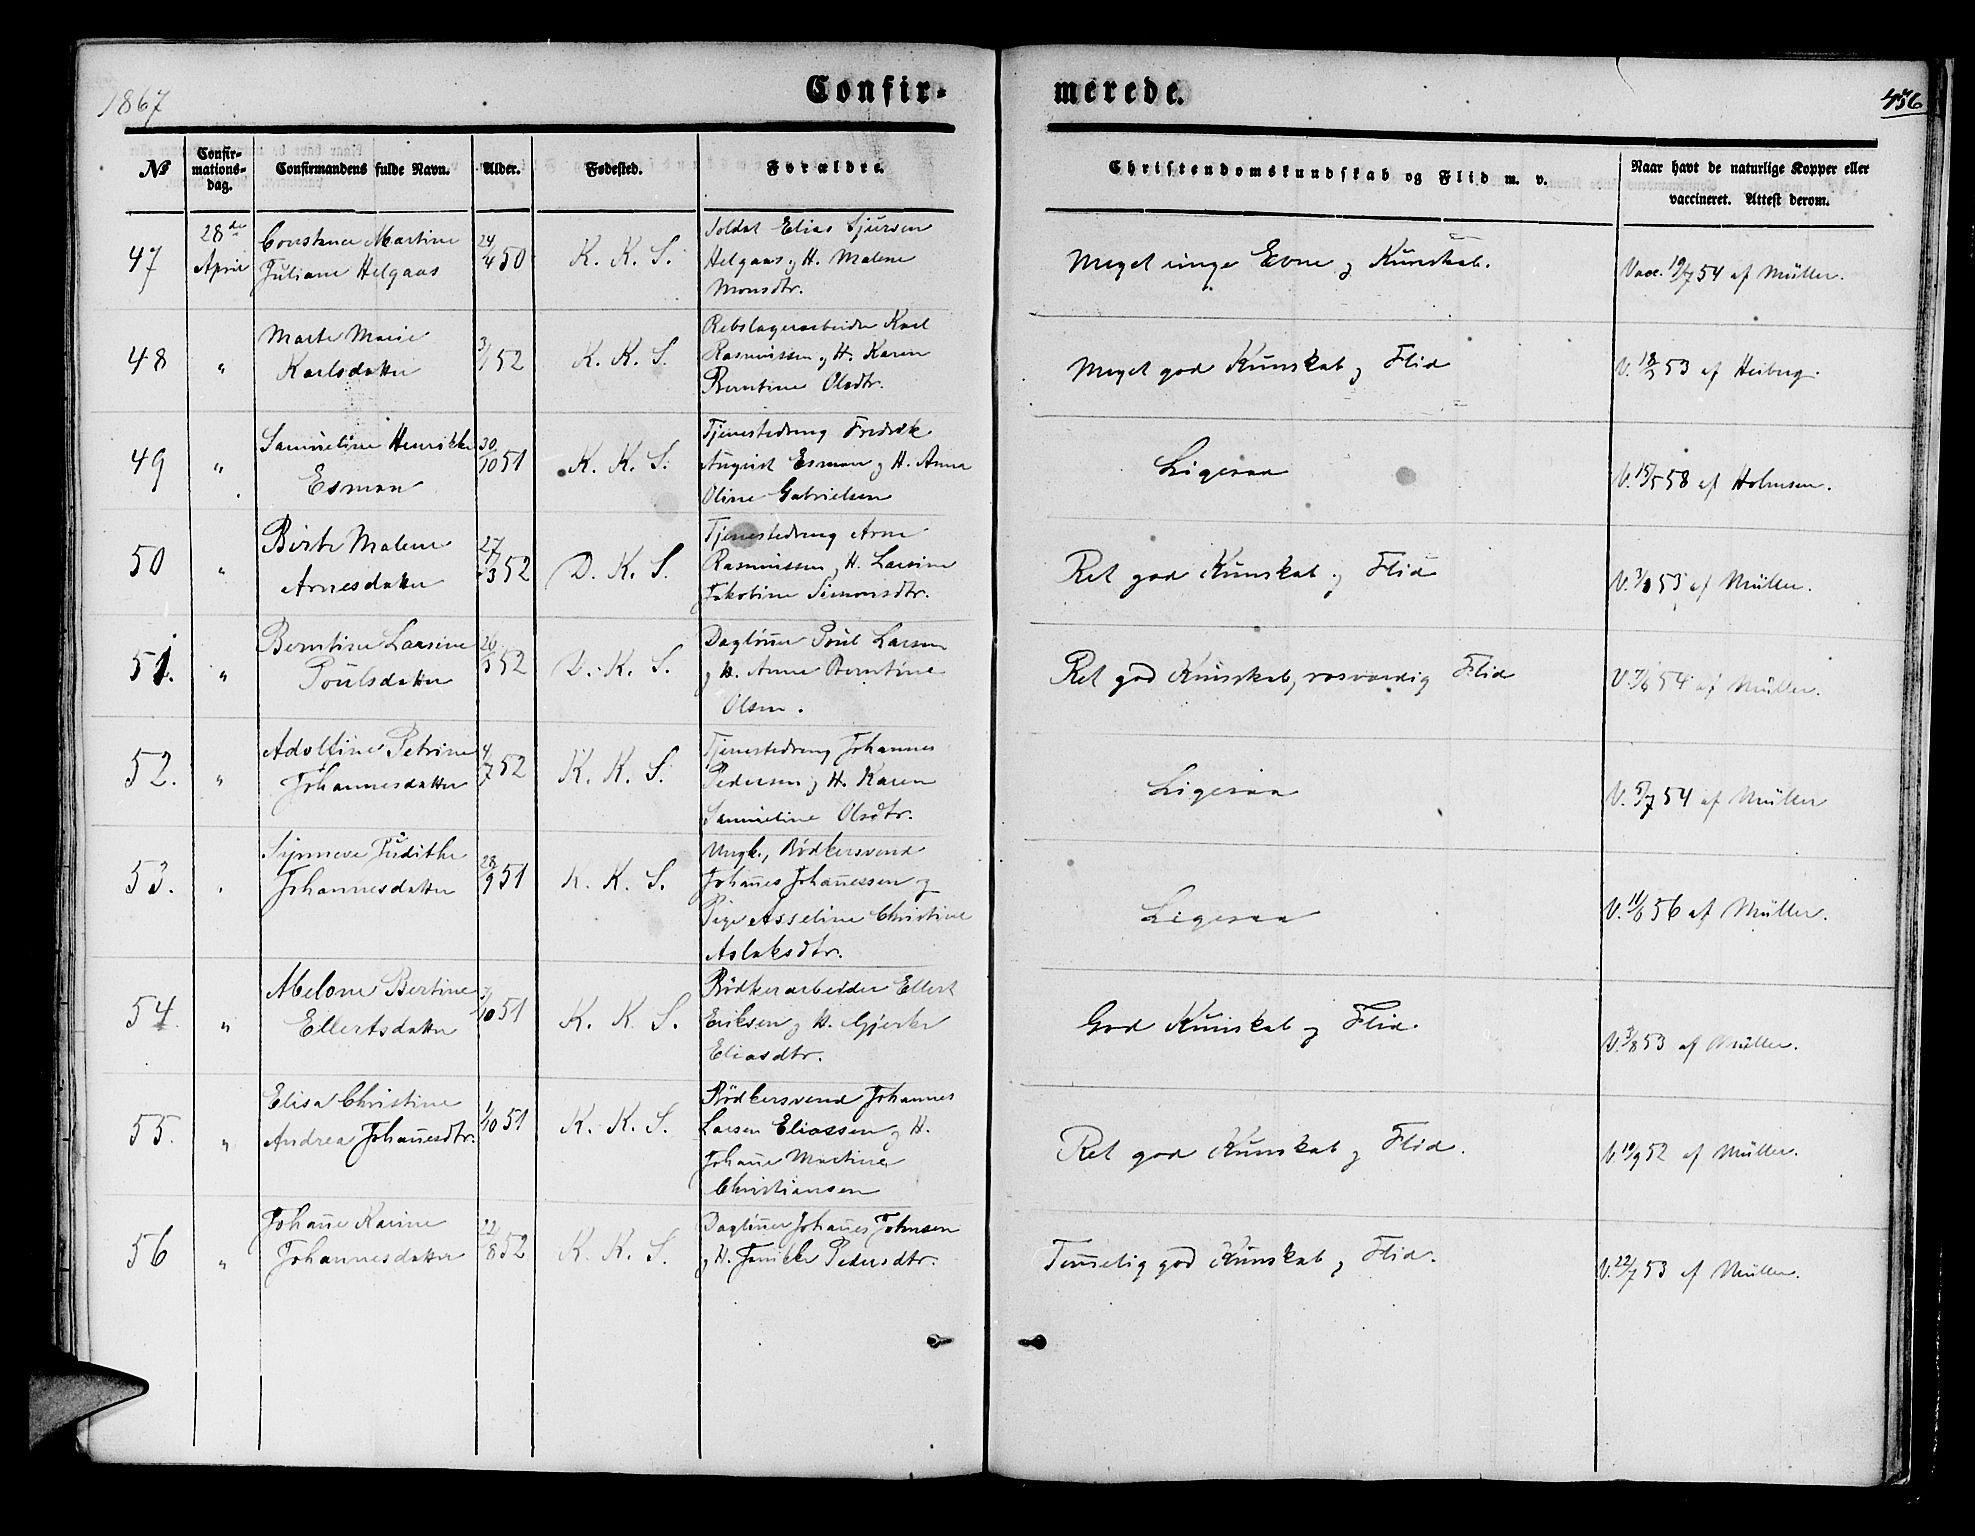 1867
Confir-
merede.
456
No
Confir-
mations-
dag.
Confirmandens fulde Navn.
Alder.
Fødested.
Forældre.
Christendomskundskab og Flid m. v.
Naar havt de naturlige Kopper eller
vaccineret. Attest derom.
47
28de
April
Constance Martine
Juliane Helgaas
24/4 50
K. K. S.
Soldat Elias Sjursen
Helgaas og H. Malene
Monsdtr.
Meget ringe Evne og Kunskab.
Vacc. 19/7 54 af Müller.
48
"
Marte Marie
Karlsdatter
3/1 52
K. K. S.
Rebslagerarbeider Karl
Rasmussen og H. Karen
Berntine Olsdtr.
Meget god Kunskab og Flid
V. 18/3 53 af Heiberg.
49
"
Samueline Henrikke
Esman
30/10 51
K. K. S.
Tjenestedreng Fredrik
August Esman og H. Anna
Oline Gabrielsen
Ligesaa
V. 15/5 58 af Holmsen.
50
"
Birte Malene
Arnesdatter
27/3 52
D. K. S.
Tjenestedreng Arne
Rasmussen og H. Larsine
Jakobine Simonsdtr.
Ret god Kunskab og Flid
V. 3/8 53 af Müller.
51.
"
Berntine Larsine
Poulsdatter
26/3 52
D. K. S.
Dagløner Poul Larsen
og H. Anne Berntine
Olsen.
Ret god Kunskab, rosværdig Flid
V. 7/6 54 af Müller.
52.
"
Adolfine Petrine
Johannesdatter
4/7 52
K. K. S.
Tjenestedreng Johannes
Pedersen og H. Karen
Samueline Olsdtr.
Ligesaa
V. 5/7 54 af Müller
53.
"
Synneve Judithe
Johannesdatter
28/9 51
K. K. S.
Ungk., Bødkersvend
Johañes Johañessen og
Pige Asseline Christine
Aslaksdtr.
Ligesaa
V. 11/6 56 af Müller.
54.
"
Abelone Bertine
Ellertsdatter
3/10 51
K. K. S.
Bødkerarbeider Ellert
Eriksen og H. Gjerte
Eliasdtr.
God Kunskab og Flid.
V. 3/8 53 af Müller.
55.
"
Elisa Christine
Andrea Johañesdtr.
1/10 51
K. K. S.
Bødkersvend Johannes
Larsen Eliassen og H.
Johañe Martine
Christiansen
Ret god Kunskab og Flid.
V. 10/9 52 af Müller.
56
"
Johañe Karine
Johannesdatter
22/8 52
K. K. S.
Dagløner Johañes Johnsen
og H. Jenikke Pedersdtr.
Temelig god Kunskab og Flid.
V. 22/7 53 af Müller.